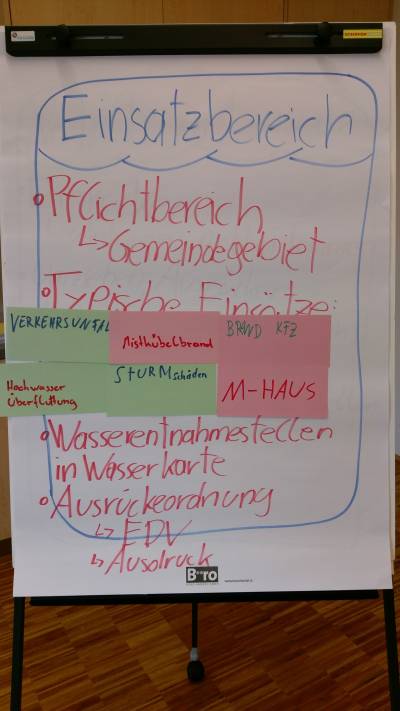 Einsatzbereich
Pflichtbereich
↳ Gemeindegebiet
Typische Einsätze:
VERKEHRSUNFAL
Misthübelbrand
BRAND KFZ
Hochwasser
Überflutung
STURMschäden
M-HAUS
Wasserentnahmestellen
in Wasserkarte
Ausrückeordnung
↳ EDV
↳ Ausdruck